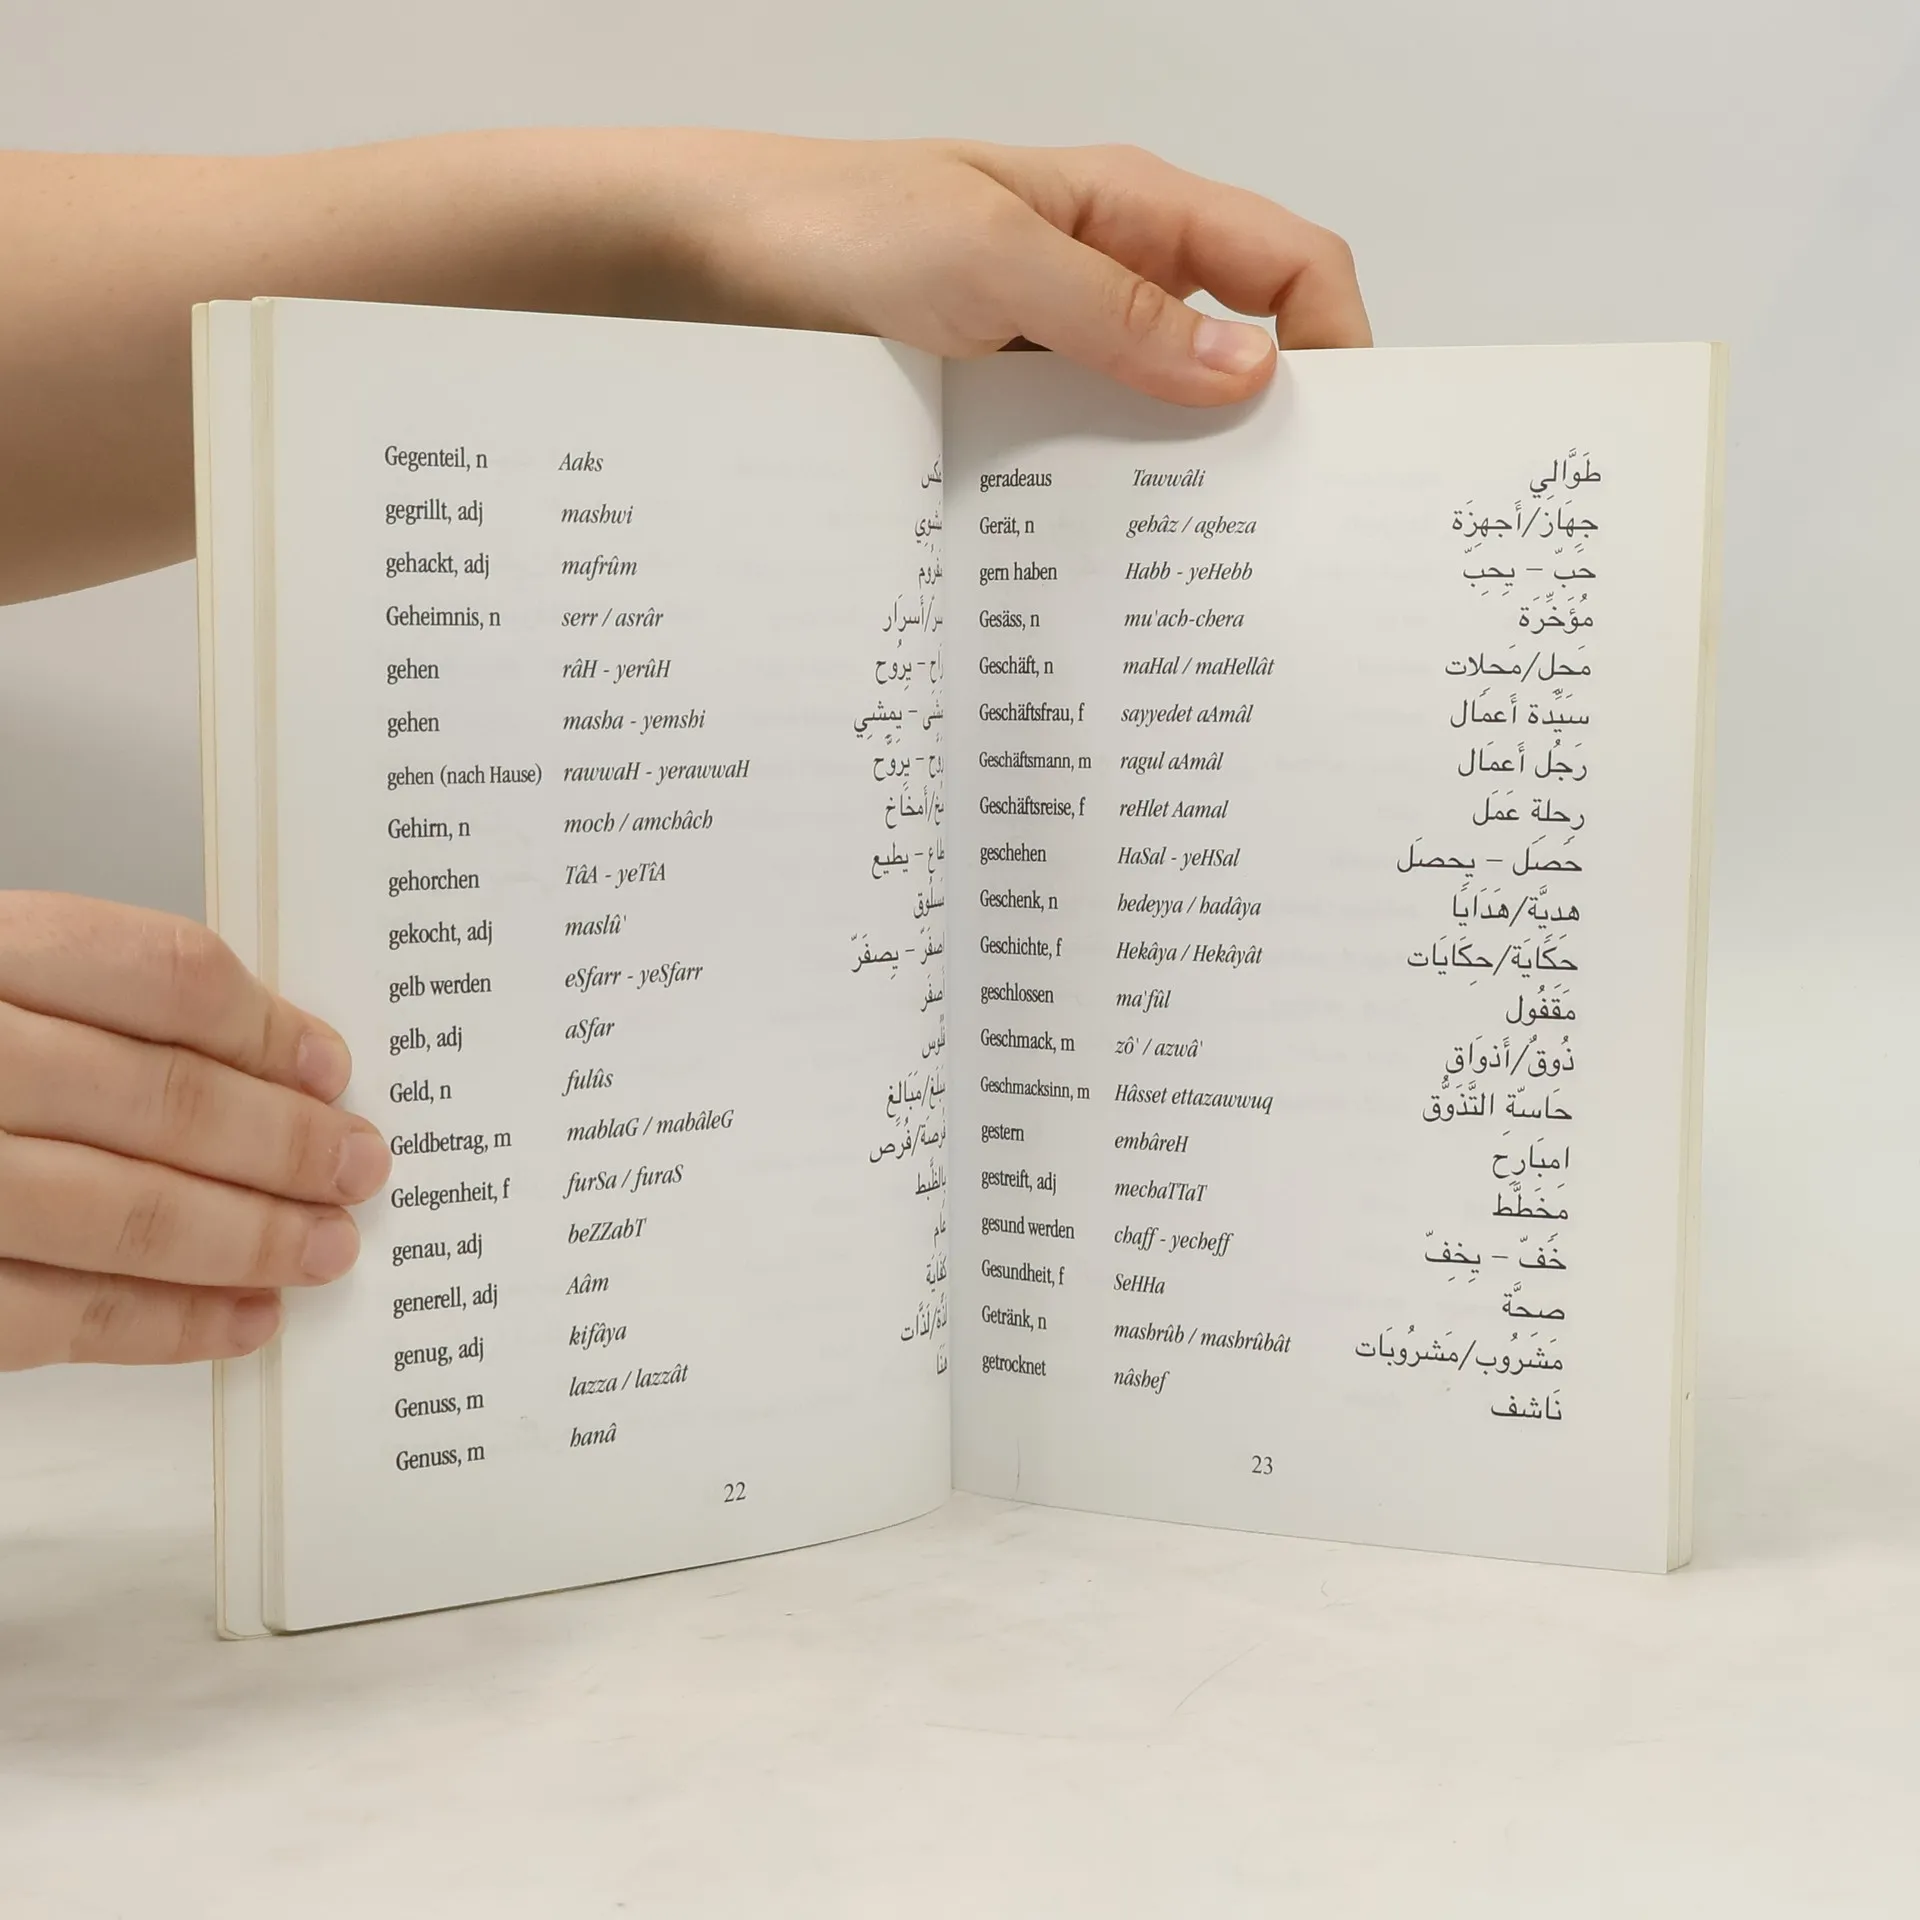 Gegenteil, n Aaks
gegrillt, adj mashwi
gehackt, adj mafrûm
Geheimnis, n serr / asrâr سر/أَسرَار
gehen râH - yerûH رَاح – يِرُوح
gehen masha - yemshi مَشَى – يِمشِي
gehen (nach Hause) rawwaH - yerawwaH رَوَّح – يِرَوَّح
Gehirn, n moch / amchâch مُخ/أَمخَاخ
gehorchen TâA - yeTîA طَاع – يطيع
gekocht, adj maslû'
gelb werden eSfarr - yeSfarr اصفَرّ – يِصفَرّ
gelb, adj aSfar أَصفَر
Geld, n fulûs
Geldbetrag, m mablaG / mabâleG مَبلَغ/مَبَالِغ
Gelegenheit, f furSa / furaS فُرصَة/فُرَص
genau, adj beZZabT
generell, adj Aâm
genug, adj kifâya
Genuss, m lazza / lazzât لَذَّة/لَذَّات
Genuss, m hanâ
22
geradeaus Tawwâli طَوَّالِي
Gerät, n gehâz / agheza جِهَاز/أَجهِزَة
gern haben Habb - yeHebb حَبّ – يِحِبّ
Gesäss, n mu'ach-chera مُؤَخِّرَة
Geschäft, n maHal / maHellât مَحل/مَحلات
Geschäftsfrau, f sayyedet aAmâl سَيِّدة أَعمَال
Geschäftsmann, m ragul aAmâl رَجُل أَعمَال
Geschäftsreise, f reHlet Aamal رِحلِة عَمَل
geschehen HaSal - yeHSal حَصَل – يحصَل
Geschenk, n hedeyya / hadâya هدِيَّة/هَدَايَا
Geschichte, f Hekâya / Hekâyât حكَايَة/حِكَايَات
geschlossen ma'fûl مَقفُول
Geschmack, m zô' / azwâ' ذُوقٌ/أَذوَاق
Geschmacksinn, m Hâsset ettazawwuq حَاسّة التَّذَوُّق
gestern embâreH امبَارِح
gestreift, adj mechaTTaT مخَطَّط
gesund werden chaff - yecheff خَفّ – يِخِفّ
Gesundheit, f SeHHa صحَّة
Getränk, n mashrûb / mashrûbât مَشرُوب/مَشرُوبَات
getrocknet nâshef نَاشف
23